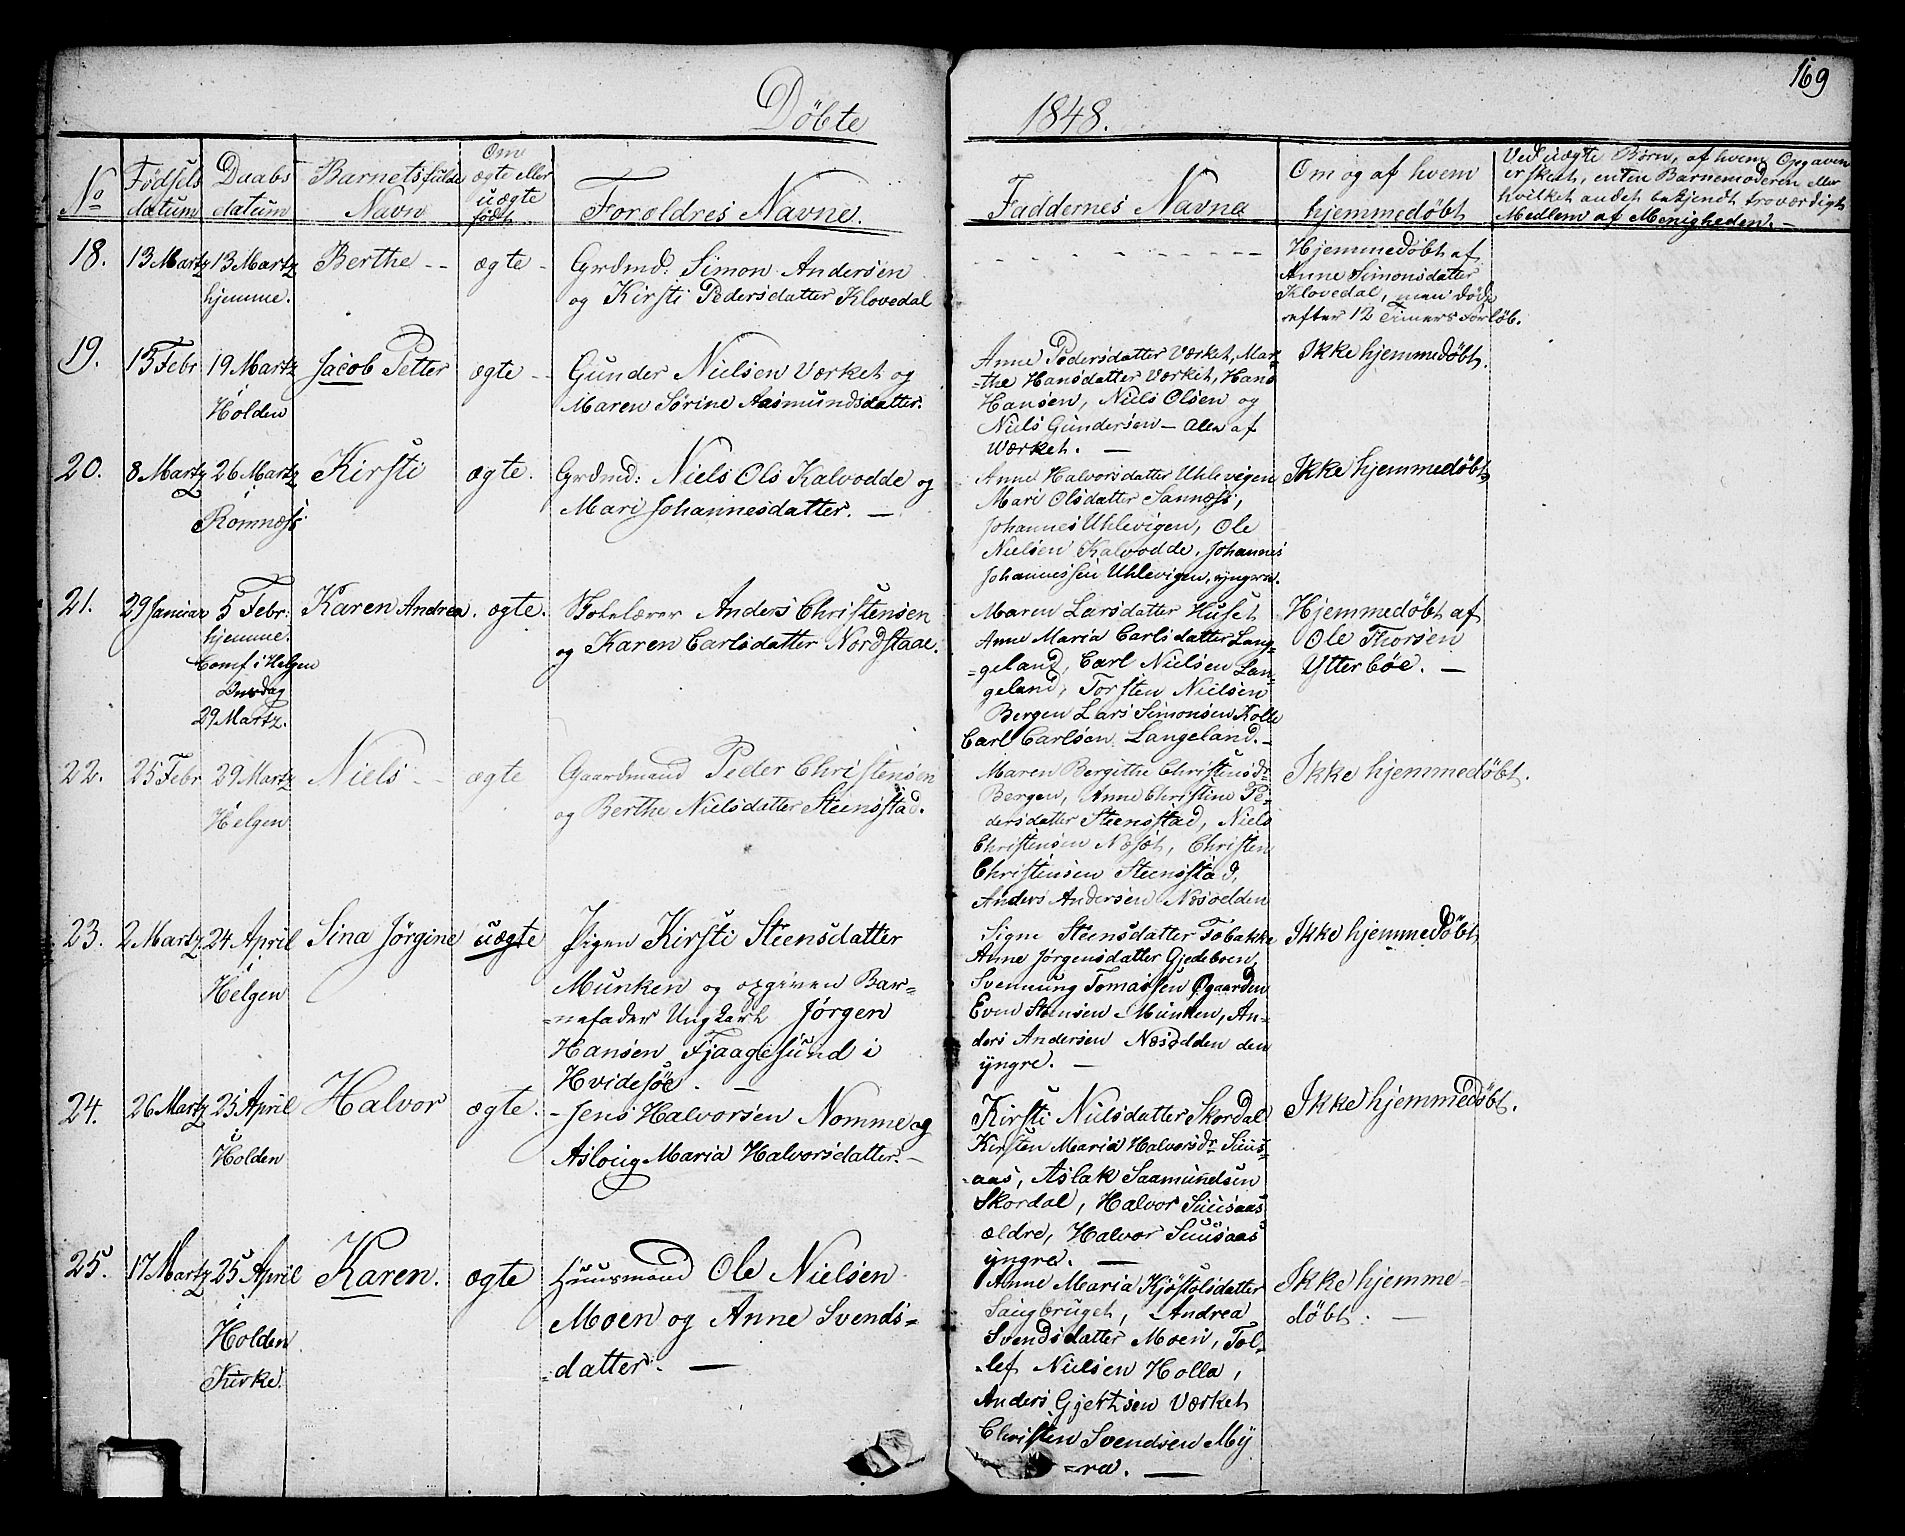 169
Döbte 1848.
No
Födsels
datum
Daabs
datum
Barnets fulde
Navn
Om
ægte eller
uægte
födt.
Forældres Navne.
Faddernes Navne
Om og af hvem
hjemmedöbt
Ved uægte Börn, af hvem Opgaven
er skeet, enten Barnemoderen eller
hvilket andet bekjendt troværdigt
Medlem af Menigheden. -
18. 13 Martz 13 Martz
hjemme.
Berthe - - ægte -
Grdmd: Simon Andersen
og Kirsti Pedersdatter Klovedal
Hjemmedöbt af
Anne Simonsdatter
Klovedal, men döde
efter 12 Timers Forlöb.
19. 15 Febr 19 Martz
i
Holden
Jacob Petter ægte -
Gunder Nielsen Værket og
Maren Sörine Aasmundsdatter.
Anne Pedersdatter Værket, Mar=
=the Hansdatter Værket, Hans
Hansen, Niels Olsen og
Niels Gundersen - Alle af
Værket. -
Ikke hjemmedöbt.
20. 8 Martz 26 Martz
i
Romnæss
Kirsti ægte.
Grdmd: Niels Ols Kalvodde og
Mari Johannesdatter. -
Anne Halvorsdatter Uhlevigen
Mari Olsdatter Sannæss,
Johannes Uhlevigen, Ole
Nielsen Kalvodde, Johannes
Johannessen Uhlevigen, yngre.
Ikke hjemmedöbt.
21. 29 Januar 5 Febr.
hjemme.
Comf. i Helgen
Onsdag
29 Martz.
Karen Andrea. ægte.
Skolelærer Anders Christensen
og Karen Carlsdatter Nordstaae.
Maren Larsdatter Huset
Anne Maria Carlsdatter Lan=
=geland, Carl Nielsen Lan=
geland, Torsten Nielsen
Bergen Lars Simonsen Kolle
Carl Carlsen Langeland. -
Hjemmedöbt af
Ole Thorsen
Ytterböe. -
22. 25 Febr 29 Martz
i
Helgen
Niels - ægte
Gaardmand Peder Christensen
og Berthe Nielsdatter Steensstad.
Maren Bergithe Christensdr
Bergen, Anne Christine Pe=
dersdatter Steensstad, Niels
Christensen Næset, Christen
Christensen Steensstad,
Anders Andersen Næsodden
Ikke hjemmedöbt.
23. 2 Martz 24 April
i
Helgen
Sina Jörgine uægte
Pigen Kirsti Steensdatter
Munken og opgiven Bar=
=nefader Ungkarl Jörgen
Hansen Fjaagesund i
Hvidesöe. -
Signe Steensdatter Tobakke
Anne Jörgensdatter Gjedeboen,
Svennung Tomassen Øgaarden
Even Steensen Munken, An=
ders Andersen Næsodden den
yngre. -
Ikke hjemmedöbt
24. 26 Martz 25 April
i
Holden
Halvor ægte.
- Jens Halvorsen Nomme og
Asloug Maria Halvorsdatter. -
Kirsti Nielsdatter Skordal
Kirsten Maria Halvorsdr Suus=
=aas, Aslak Saamundsen
Skordal, Halvor Suusaas
ældre, Halvor Suusaas
yngre. -
Ikke hjemmedöbt.
25. 17 Martz 25 April
i
Holden
Kirke.
Karen. ægte
Huusmand Ole Nielsen
Moen og Anne Svends=
=datter. -
Anne Maria Kjöstolsdatter
Saugbruget, Andrea
Svendsdatter Moen, Tol=
=lef Nielsen Holla,
Anders Gjertsen Værket
Christen Svendsen My
=ra. -
Ikke hjemme=
döbt. -